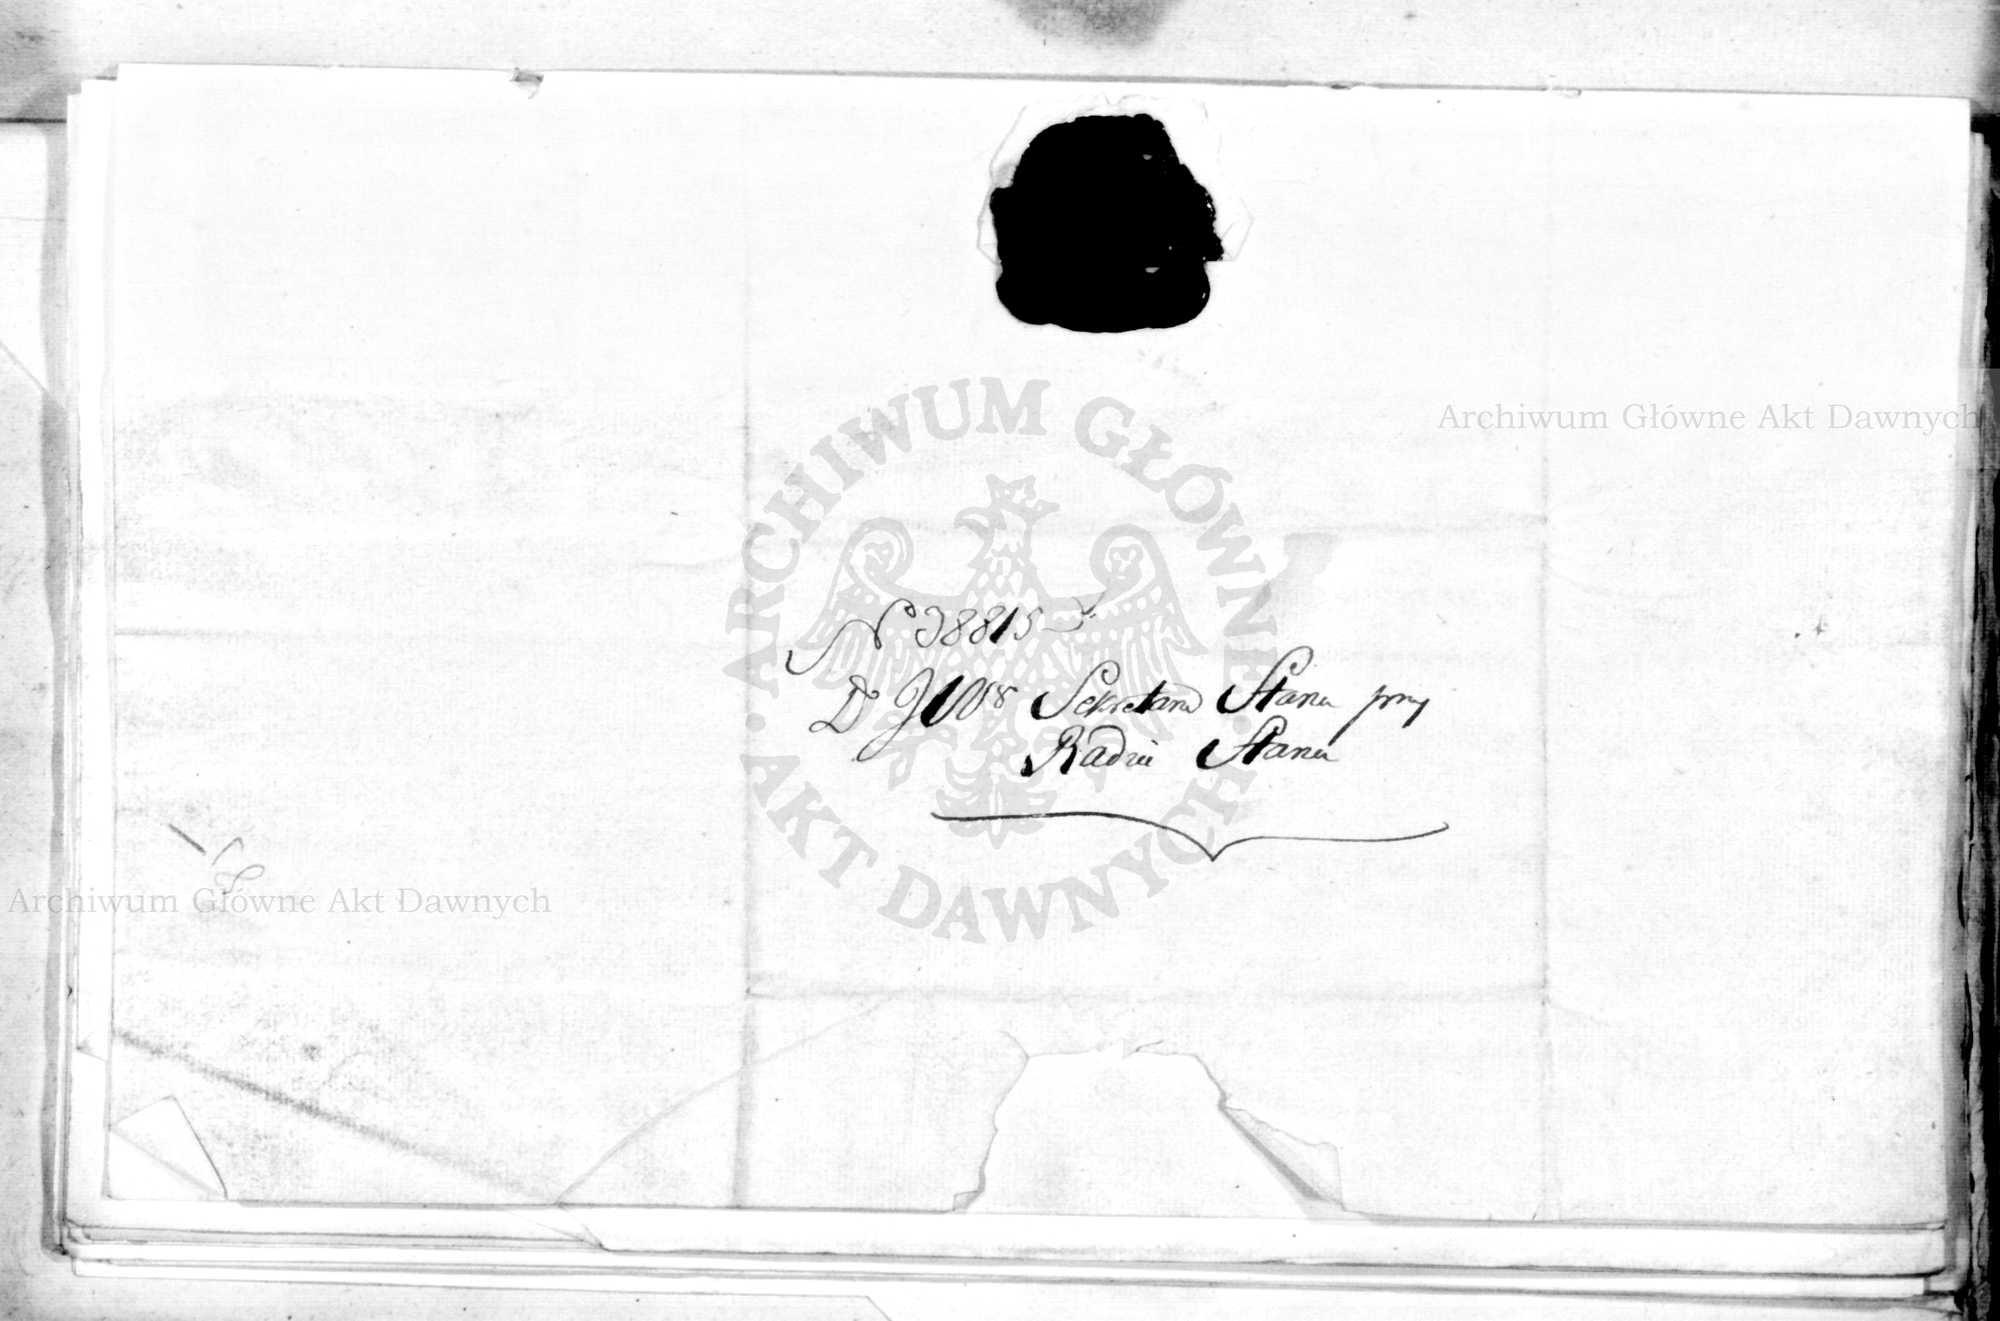 Archiwum Główne Akt Dawnych
ARCHIWUM GŁÓWNE AKT DAWNYCH
No 38815
Do JW Sekretarza Stanu przy
Radzie Stanu
Archiwum Główne Akt Dawnych